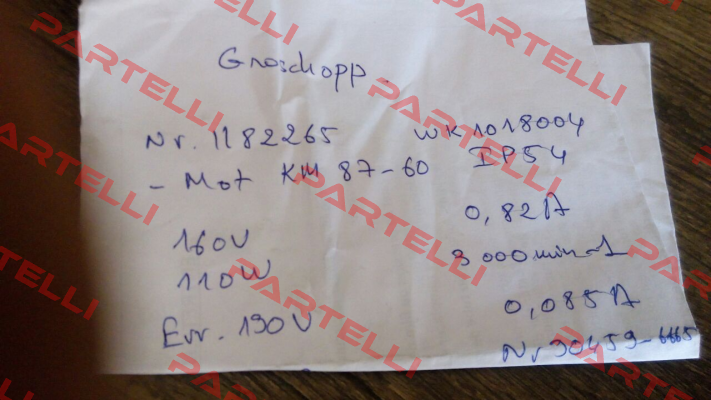 Groschopp.
Nr. 1182265 WK1018004
- Mot KM 87-60 IP54
160V 0,82A
110W 3000min-1
Err. 190V 0,085A
Nr 90459-6665
PARTELLI
PARTELLI
PARTELLI
PARTELLI
PARTELLI
PARTELLI
PARTELLI
PARTELLI
PARTELLI